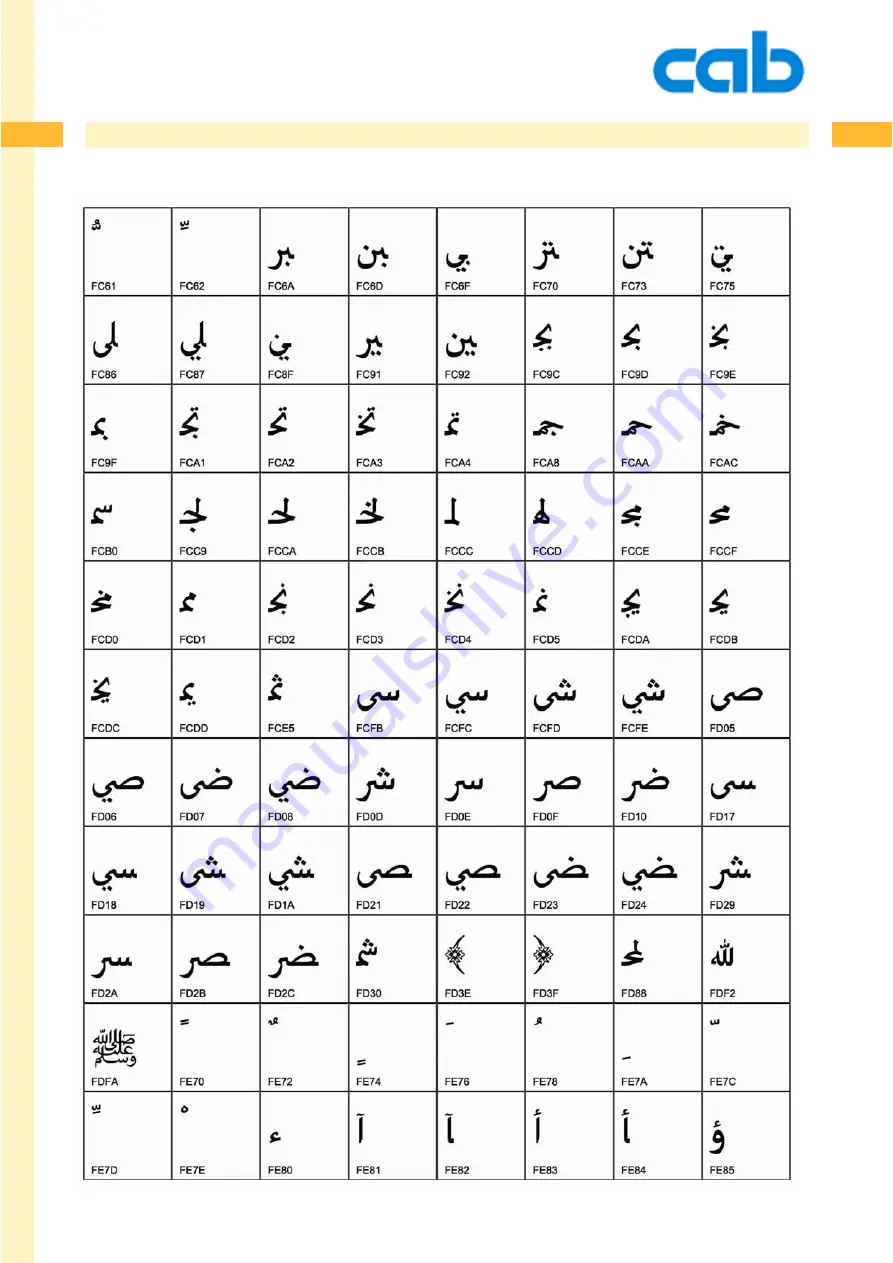 cab
ﱡ ﱢ ﱪ ﱭ ﱯ ﱰ ﱳ ﱵ
FC61 FC62 FC6A FC6D FC6F FC70 FC73 FC75
ﲆ ﲇ ﲏ ﲑ ﲒ ﲜ ﲝ ﲞ
FC86 FC87 FC8F FC91 FC92 FC9C FC9D FC9E
ﲟ ﲡ ﲢ ﲣ ﲤ ﲨ ﲪ ﲬ
FC9F FCA1 FCA2 FCA3 FCA4 FCA8 FCAA FCAC
ﲰ ﳉ ﳊ ﳋ ﳌ ﳍ ﳎ ﳏ
FCB0 FCC9 FCCA FCCB FCCC FCCD FCCE FCCF
ﳐ ﳑ ﳒ ﳓ ﳔ ﳕ ﳚ ﳛ
FCD0 FCD1 FCD2 FCD3 FCD4 FCD5 FCDA FCDB
ﳜ ﳝ ﳥ ﳻ ﳼ ﳽ ﳾ ﴅ
FCDC FCDD FCE5 FCFB FCFC FCFD FCFE FD05
ﴆ ﴇ ﴈ ﴍ ﴎ ﴏ ﴐ ﴗ
FD06 FD07 FD08 FD0D FD0E FD0F FD10 FD17
ﴘ ﴙ ﴚ ﴡ ﴢ ﴣ ﴤ ﴩ
FD18 FD19 FD1A FD21 FD22 FD23 FD24 FD29
ﴪ ﴫ ﴬ ﴰ ﴾ ﴿ ﶈ ﷲ
FD2A FD2B FD2C FD30 FD3E FD3F FD88 FDF2
ﷺ ﹰ ﹲ ﹴ ﹶ ﹸ ﹺ ﹼ
FDFA FE70 FE72 FE74 FE76 FE78 FE7A FE7C
ﹽ ﹾ ﺀ ﺁ ﺂ ﺃ ﺄ ﺅ
FE7D FE7E FE80 FE81 FE82 FE83 FE84 FE85
manualshive.com